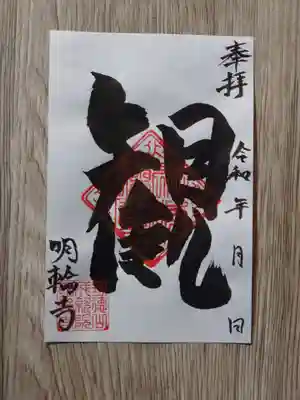 奉拝
令和 年 月 日
観
明輪寺